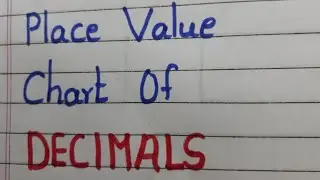 Place Value
Chart Of
DECIMALS